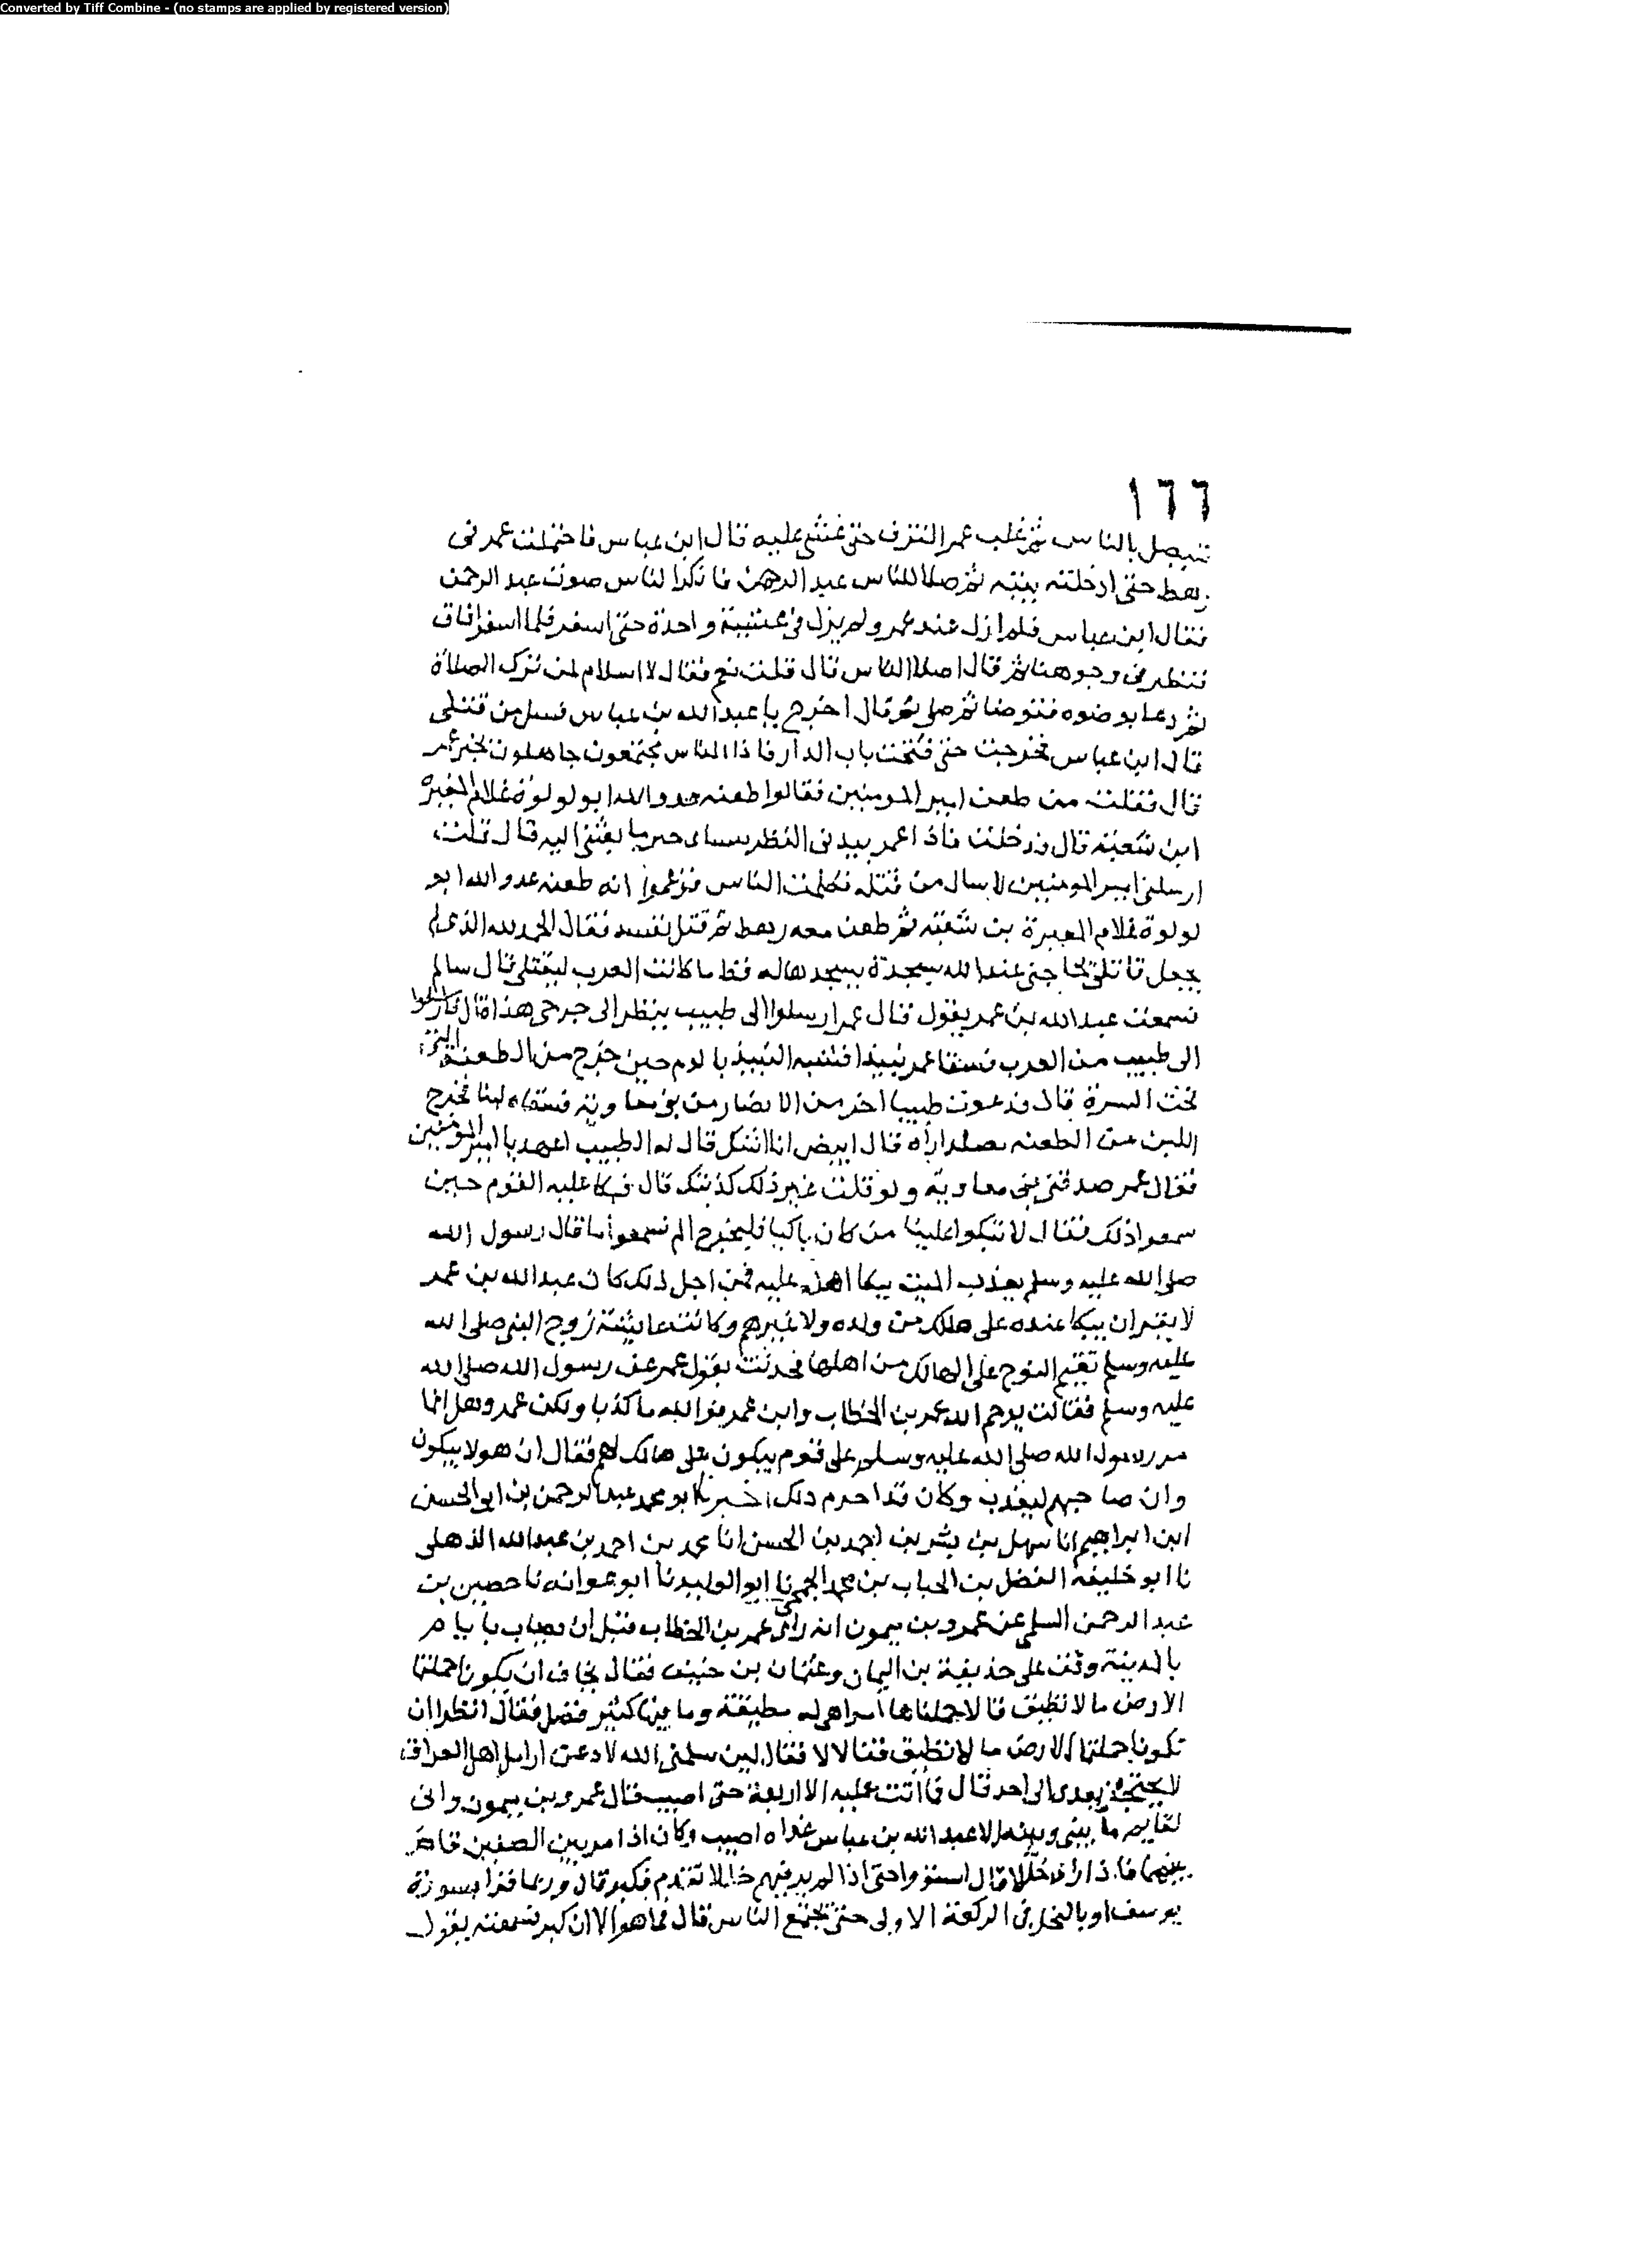 Converted by Tiff Combine - (no stamps are applied by registered version)
١٦٦
فيصل بالناس ثم غلب عمر النزف حتى غشى عليه قال ابن عباس فاحتملت عمر في
رهط حتى ادخلته بيته ثم صلا للناس عبد الرحمن فانكر الناس صوت عبد الرحمن
فقال ابن عباس فلم ازل عند عمر ولم يزل في غشية واحدة حتى اسفر فلما اسفر افاق
فنظر في وجوهنا ثم قال اصلا الناس قال قلت نعم فقال لا اسلام لمن ترك الصلاة
ثم دعا بوضوء فتوضا ثم صلى ثم قال اخرج يا عبد الله بن عباس فسل من قتلني
قال ابن عباس فخرجت حتى فتحت باب الدار فاذا الناس مجتمعون جاهلون بخبر عمر
قال فقلت من طعن امير المومنين فقالوا طعنه عدو الله ابو لولوة غلام المغيرة
ابن شعبة قال فدخلت فاذا عمر يبدني النظر يسال خبر ما بعثني اليه قال قلت
ارسلني امير المومنين لاسال من قتله فكلمت الناس فزعموا انه طعنه عدو الله ابو
لولوة غلام المغيرة بن شعبة ثم طعن معه رهط ثم قتل نفسه فقال الحمد لله الذي لم
يجعل قاتلي يحاجني عند الله بسجدة سجدها له قط ما كانت العرب ليقتلني قال سالم
فسمعت عبد الله بن عمر يقول فقال عمر ارسلوا الى طبيب ينظر الى جرحي هذا قال فارسلوا
الى طبيب من العرب فسقا عمر نبيذا فشبه النبيذ بالدم حين خرج من الطعنة التي
تحت السرة قال فدعوت طبيبا اخر من الانصار من بني معاوية فسقاه لبنا فخرج
اللبن من الطعنه يصلد ابيض قال له الطبيب اعهد يا امير المومنين
فقال عمر صدقني اخو بني معاوية ولو قلت غير ذلك كذبتك قال فبكا عليه القوم حين
سمعوا ذلك فقال لا تبكوا علينا من كان باكيا فليخرج الم تسمعوا ما قال رسول الله
صلى الله عليه وسلم يعذب الميت ببكا اهله عليه فمن اجل ذلك كان عبد الله بن عمر
لا يقر ان يبكا عنده على هالك من ولده ولا غيرهم وكانت عايشة زوج النبي صلى الله
عليه وسلم تقيم النوح على الهالك من اهلها فحدثت بقول عمر عن رسول الله صلى الله
عليه وسلم فقالت يرحم الله عمر بن الخطاب وابن عمر فوالله ما كذبا ولكن عمر وهل انما
مر رسول الله صلى الله عليه وسلم على قوم يبكون على هالك لهم فقال ان هولا يبكون
وان صاحبهم ليعذب وكان قد اجرم ذلك اخبرنا ابو محمد عبد الرحمن بن ابي الحسن
ابن ابراهيم انا سهل بن بشر بن احمد بن الحسن انا محمد بن احمد بن عبد الله الذهلي
نا ابو خليفة الفضل بن الحباب بن محمد الجمحي نا ابو الوليد نا ابو عوانه نا حصين بن
عبد الرحمن السلمي عن عمرو بن ميمون انه راى عمر بن الخطاب قبل ان يصاب بايام
بالمدينة وقف على حذيفة بن اليمان وعثمان بن حنيف فقال تخاف ان يكونا حملتما
الارض ما لا تطيق قالا حملناها امرا هي له مطيقة وما فيها كثير فضل فقال انظرا ان
تكونا حملتما الارض ما لا تطيق فقالا لا فقال لين سلمني الله لادعن ارامل اهل العراق
لا يحتجن بعدي الى احد قال فما اتت عليه الا اربعة حتى اصيب قال عمرو بن ميمون واني
لقايم ما بيني وبينه الا عبد الله بن عباس غداة اصيب وكان اذا مر بين الصفين قام
بينهما فاذا راى خللا قال استووا حتى اذا لم ير فيهم خللا تقدم فكبر قال وربما قرا بسورة
يوسف او بالنحل في الركعة الاولى حتى يجتمع الناس قال فما هو الا ان كبر فسمعته يقول